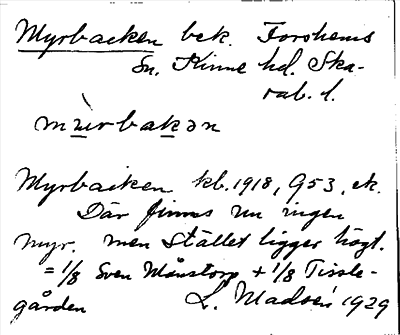 Myrbacken bek. Forshems
Sn. Kinne hd. Ska-
rab. l.
mùrbakən
Myrbacken kb. 1918, G53, ek.
Där finns nu ingen
myr. men stället ligger högt.
= 1/8 Sven Månstorp + 1/8 Tissle-
gården L. Madsén 1929